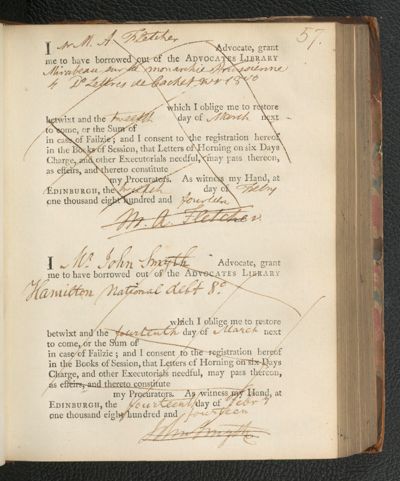 57.
I Mr M. A. Fletcher Advocate, grant
me to have borrowed out of the ADVOCATES LIBRARY
Mirabeau sur la monarchie Prussienne
4 Do Lettres de Cachet
which I oblige me to restore
betwixt and the twelfth day of March next
to come, or the Sum of
in case of Failzie; and I consent to the registration hereof
in the Books of Session, that Letters of Horning on six Days
Charge, and other Executorials needful, may pass thereon,
as effeirs, and thereto constitute
my Procurators. As witness my Hand, at
EDINBURGH, the twelfth day of Febry
one thousand eight hundred and fourteen
M. A. Fletcher.
I Mr. John Smyth Advocate, grant
me to have borrowed out of the ADVOCATES LIBRARY
Hamilton National debt 8o
which I oblige me to restore
betwixt and the fourteenth day of March next
to come, or the Sum of
in case of Failzie; and I consent to the registration hereof
in the Books of Session, that Letters of Horning on six Days
Charge, and other Executorials needful, may pass thereon,
as effeirs, and thereto constitute
my Procurators. As witness my Hand, at
EDINBURGH, the fourteenth day of Febry
one thousand eight hundred and fourteen
John Smyth